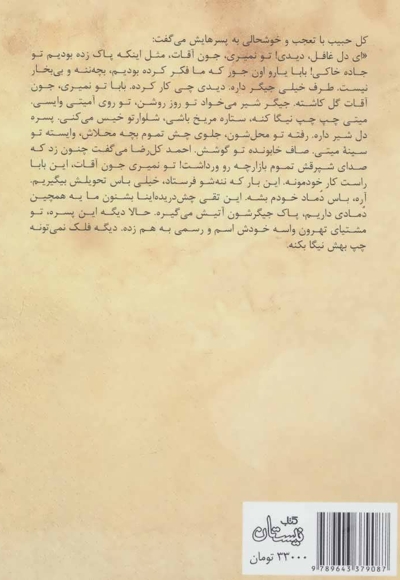 کل حبیب با تعجب و خوشحالی به پسرهایش می‌گفت:
«ای دل غافل، دیدی! تو نمیری، جون آقات، مثل اینکه پاک زده بودیم تو
جاده خاکی! بابا یارو اون جور که ما فکر کرده بودیم، بچه‌ننه و بی‌بخار
نیست. طرف خیلی جیگر داره. دیدی چی کار کرده. بابا تو نمیری، جون
آقات گل کاشته. جیگر شیر می‌خواد تو روز روشن، تو روی آمیتی وایسی.
میتی چپ چپ نیگا کنه، ستاره مریخ باشی، شلوارتو خیس می‌کنی. پسره
دل شیر داره. رفته تو محل‌شون، جلوی چش تموم بچه محلاش، وایسته تو
سینهٔ میتی. صاف خابونده تو گوشش. احمد کل‌رضا می‌گفت چنون زد که
صدای شیرقش تموم بازارچه رو ورداشت! تو نمیری جون آقات، این بابا
راست کار خودمونه. این بار که ننه‌شو فرستاد، خیلی باس تحویلش بیگیریم.
آره، باس دماد خودم بشه. این تقی چش‌دریده‌اینا بشنون ما یه همچین
دمادی داریم، پاک جیگرشون آتیش می‌گیره. حالا دیگه این پسره، تو
مشتیای تهرون واسه خودش اسم و رسمی به هم زده. دیگه فلک نمی‌تونه
چپ بهش نیگا بکنه.
کتاب
نیستان
۳۳۰۰۰ تومان
9 789643 379087